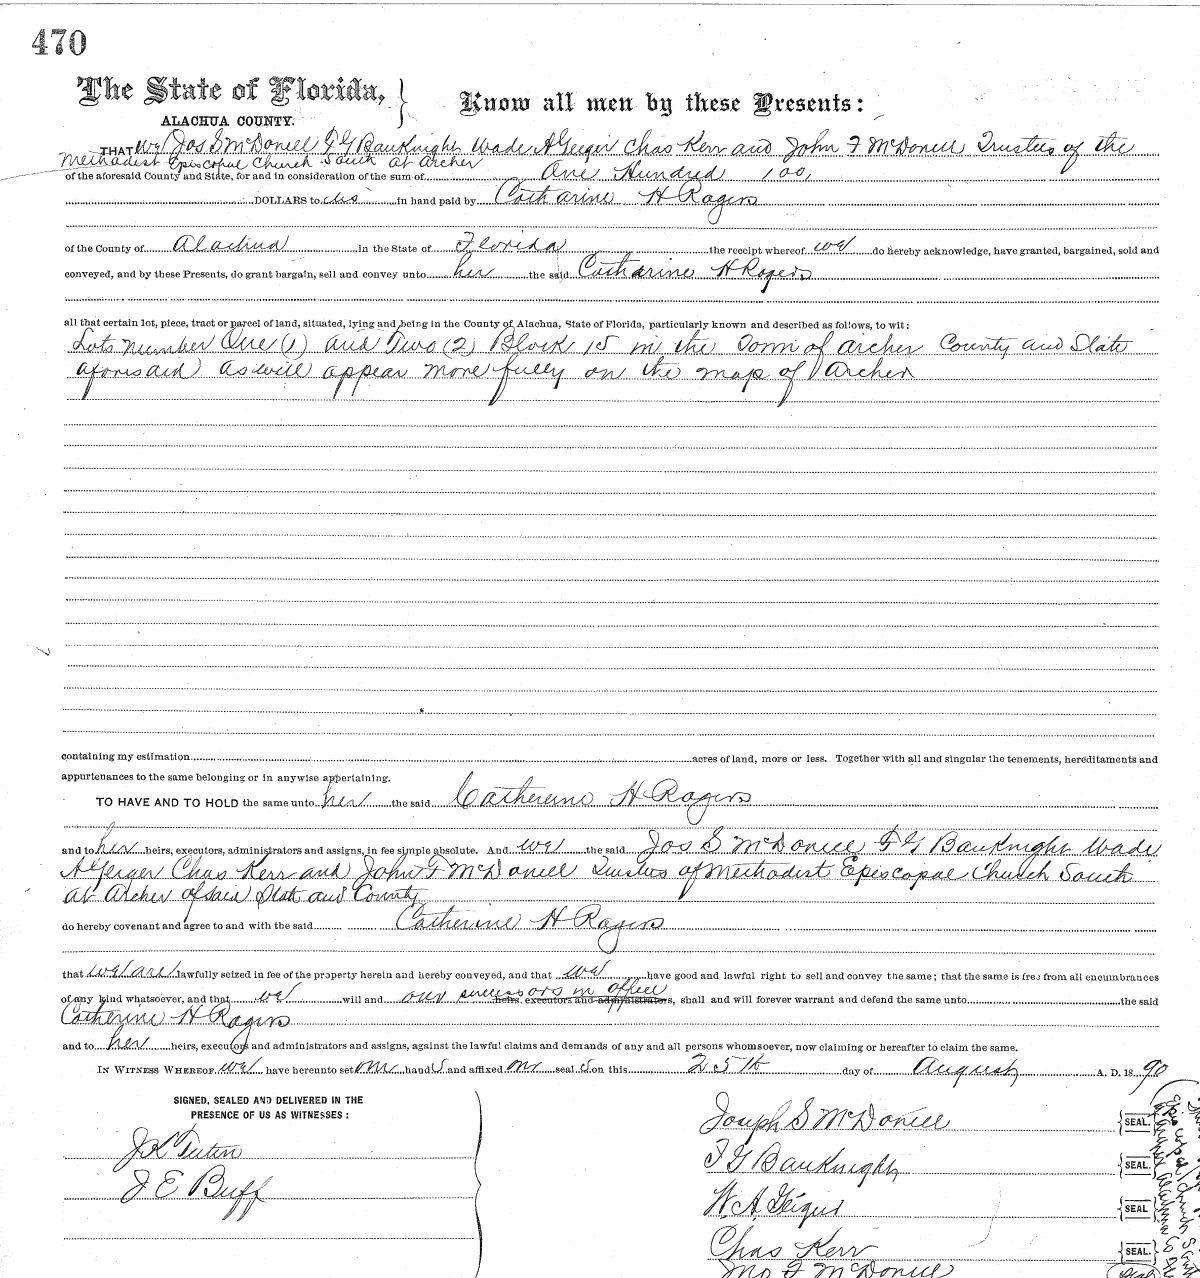 470
The State of Florida,
ALACHUA COUNTY.
Know all men by these Presents:
THAT we Jos S McDonell F G BauKnight Wade A Geiger Chas Kerr and John F McDonell Trustees of the
Methodist Episcopal Church South at Archer
of the aforesaid County and State, for and in consideration of the sum of One Hundred 100,
DOLLARS to us in hand paid by Catharine H Rogers
of the County of Alachua in the State of Florida the receipt whereof we do hereby acknowledge, have granted, bargained, sold and
conveyed, and by these Presents, do grant bargain, sell and convey unto her the said Catharine H Rogers
all that certain lot, piece, tract or parcel of land, situated, lying and being in the County of Alachua, State of Florida, particularly known and described as follows, to wit:
Lots number One (1) and Two (2) Block 15 in the Town of Archer County and State
aforesaid as will appear more fully on the map of Archer
containing my estimation acres of land, more or less. Together with all and singular the tenements, hereditaments and
appurtenances to the same belonging or in anywise appertaining.
TO HAVE AND TO HOLD the same unto her the said Catherine H Rogers
and to her heirs, executors, administrators and assigns, in fee simple absolute. And we the said Jos S McDonell F G BauKnight Wade
A Geiger Chas Kerr and John F McDonell Trustees of Methodist Episcopal Church South
at Archer of said State and County
do hereby covenant and agree to and with the said Catherine H Rogers
that we are lawfully seized in fee of the property herein and hereby conveyed, and that we have good and lawful right to sell and convey the same; that the same is free from all encumbrances
of any kind whatsoever, and that we will and our successors in office heirs, executors and administrators, shall and will forever warrant and defend the same unto the said
Catherine H Rogers
and to her heirs, executors and administrators and assigns, against the lawful claims and demands of any and all persons whomsoever, now claiming or hereafter to claim the same.
IN WITNESS WHEREOF we have hereunto set our hand s and affixed our seal s on this 25th day of August A. D. 1890
SIGNED, SEALED AND DELIVERED IN THE
PRESENCE OF US AS WITNESSES:
J E Buff
Joseph S McDonell SEAL.
F G BauKnight SEAL.
W. A. Geiger SEAL
Chas Kerr SEAL.
Jno F McDonell Seal